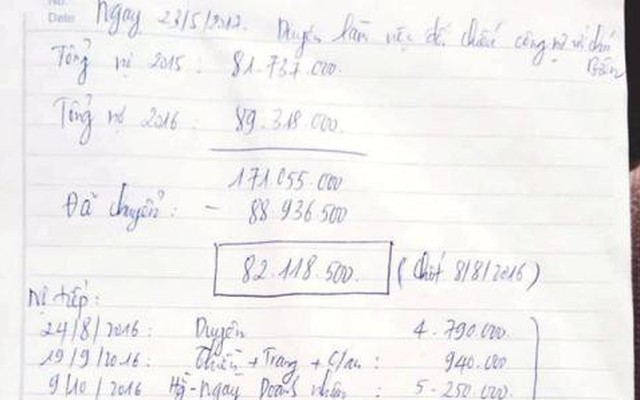 No.
Date
Ngày 23/5/2017. Duyên làm việc đối chiếu công nợ với chú
Bốn
Tổng nợ 2015 : 81.737.000.
Tổng nợ 2016 : 89.318.000.
171.055.000
Đã chuyển : - 88 936 500
82.118.500. (Chốt 8/8/2016)
Nợ tiếp:
24/8/2016 : Duyên 4.790.000.
19/9/2016 : Thiên + Trang + C/an : 940.000
9/10/2016 Hg - Ngày Doanh nhân : 5-250 000.